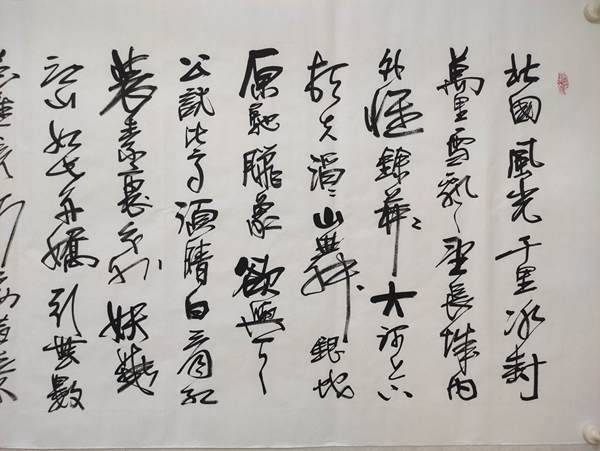 北國風光千里冰封
萬里雪飄望長城內
外惟餘莽〻大河上下
頓失滔〻山舞銀蛇
原馳臘象欲與天
公試比高須晴日看紅
裝素裹分外妖嬈
江山如此多嬌引無數